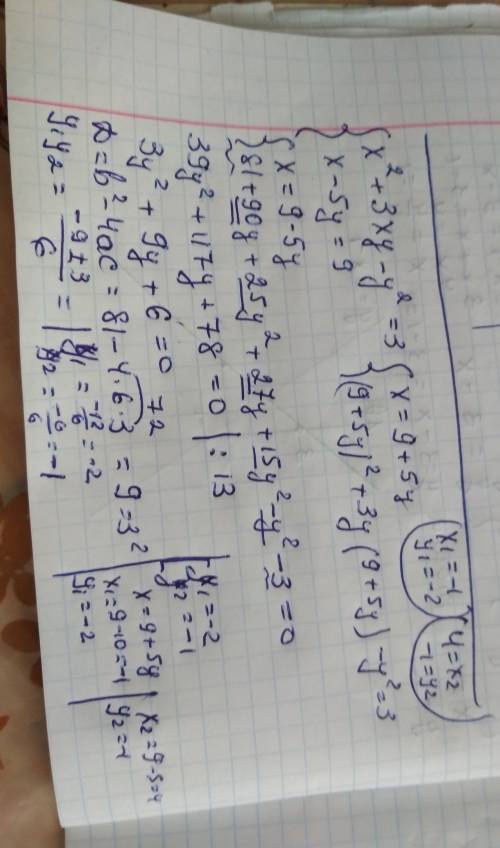 { x² + 3xy - y² = 3
x - 5y = 9
{ x = 9 + 5y
(9+5y)² + 3y(9+5y) - y² = 3
(x₁ = -1
y₁ = -2)
(4 = x₂
-1 = y₂)
{ x = 9 - 5y
81 + 90y + 25y² + 27y + 15y² - y² - 3 = 0
39y² + 117y + 78 = 0 | : 13
3y² + 9y + 6 = 0
72
D = b² - 4ac = 81 - 4·6·3 = 9 = 3²
y₁y₂ = -9±3/6 = | y₁ = -12/6 = -2
y₂ = -6/6 = -1
[ y₁ = -2
y₂ = -1
x = 9 + 5y
x₁ = 9-10 = -1
y₁ = -2
x₂ = 9-5=4
y₂ = -1